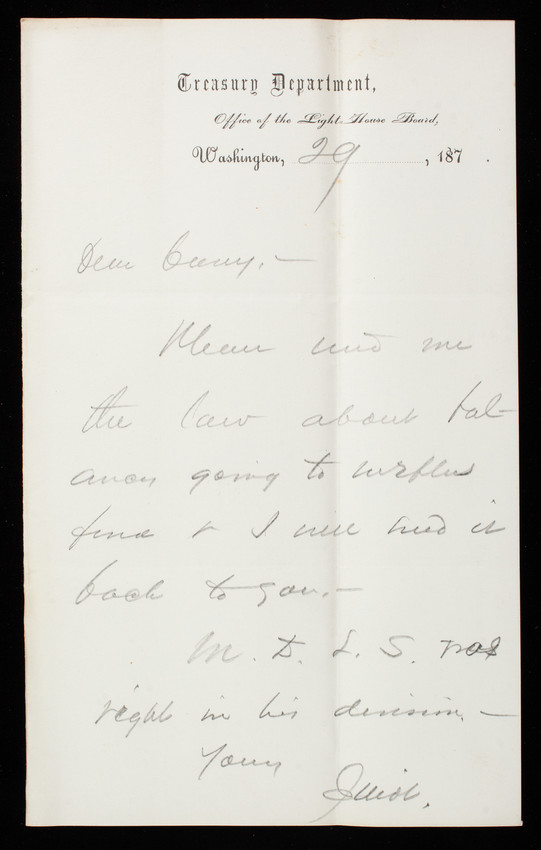 Treasury Department,
Office of the Light-House Board,
Washington, 29, 187 .
Dear Casey. —
Please send me
the law about bal-
ances going to surplus
fund & I will send it
back to you. —
M. D. L. S. not
right in his decision. —
Yours